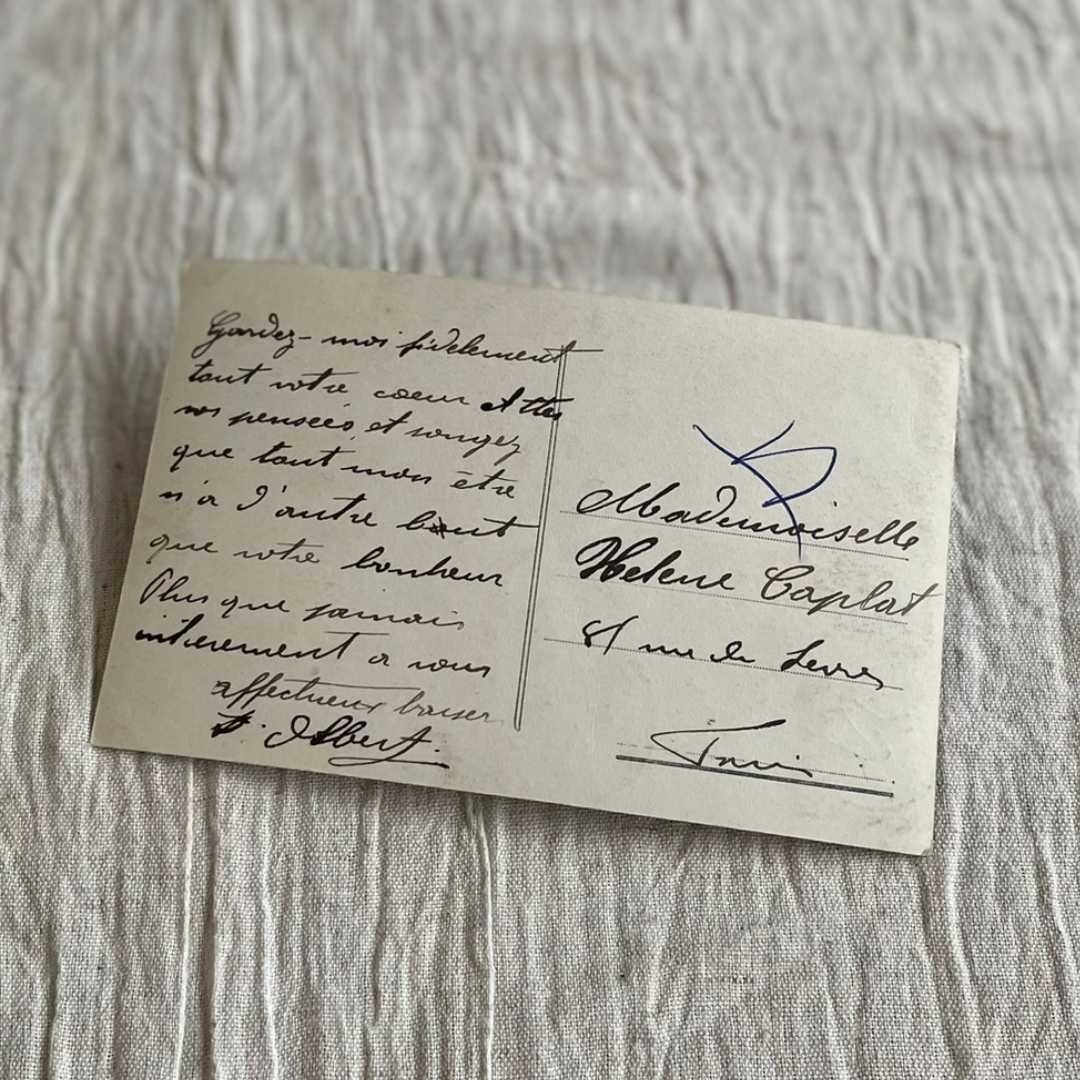 Gardez-moi fidèlement
tout votre coeur et ttes
vos pensées, et songez
que tout mon être
n'a d'autre but
que votre bonheur
Plus que jamais
entièrement a vous
affectueux baiser
Albert.
Mademoiselle
Helene Caplat
rue de Sevres
Paris